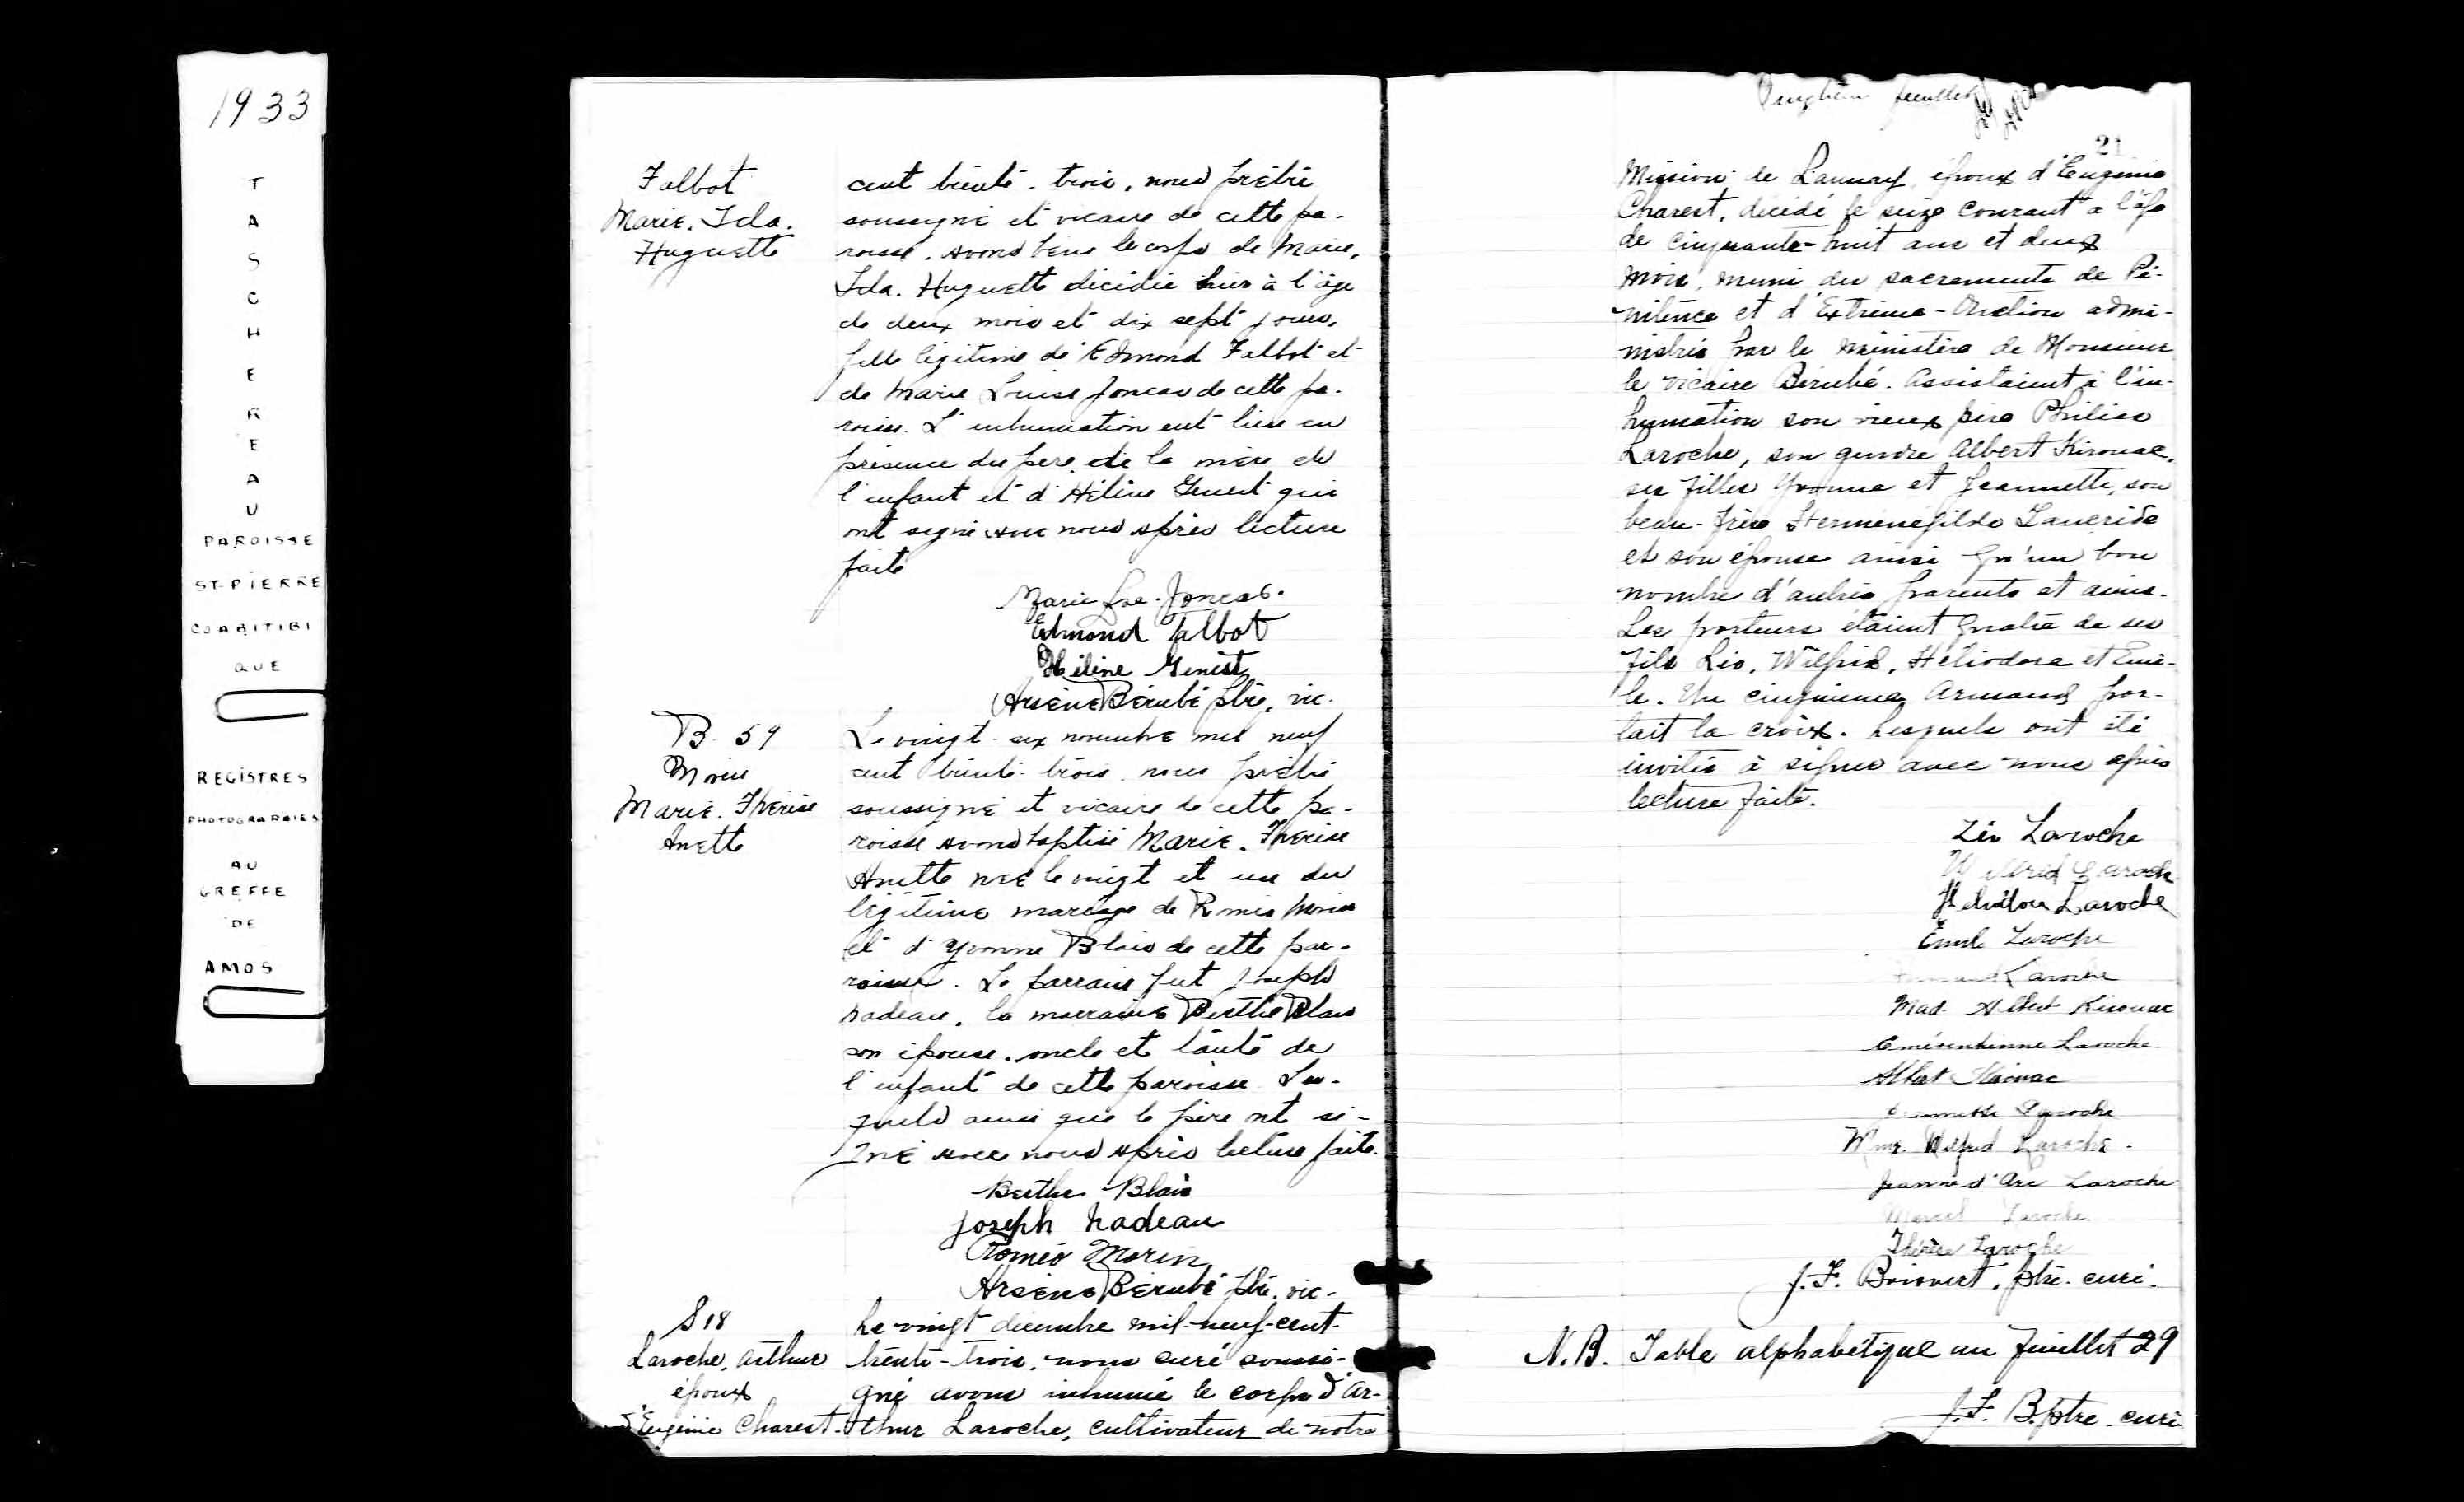 1933
TASCHEREAU
PAROISSE
ST-PIERRE
CO ABITIBI
QUE
REGISTRES
PHOTOGRAPHIES
AU
GREFFE
DE
AMOS
Talbot
Marie. Ida.
Huguette
cent trente-trois, nous prêtre
soussigné et vicaire de cette pa-
roisse, avons béni le corps de Marie,
Ida. Huguette décédée hier à l'âge
de deux mois et dix sept jours,
fille légitime de Edmond Talbot et
de Marie Louise Joncas de cette pa-
roisse. L'inhumation eut lieu en
présence du père, de la mère de
l'enfant et d'Hélène Genest qui
ont signé avec nous après lecture
faite
Marie Lse. Joncas.
Edmond Talbot
Hélène Genest
Arsène Bérubé ptre, vic.
B. 59
Morin
Marie. Thérèse
Anette
Le vingt-six novembre mil neuf
cent trente-trois, nous prêtre
soussigné et vicaire de cette pa-
roisse avons baptisé Marie. Thérèse
Anette née le vingt et un du
légitime mariage de Roméo Morin
et d'Yvonne Blais de cette par-
roisse. Le parrain fut Joseph
Nadeau, la marraine Berthe Blais
son épouse, oncle et tante de
l'enfant de cette paroisse. Les-
quels ainsi que le père ont si-
gné avec nous après lecture faite.
Berthe Blais
Joseph Nadeau
Roméo Morin
Arsène Bérubé ptre. vic.
S 18
Laroche, Arthur
époux
d'Eugénie Charest.
Le vingt décembre mil-neuf-cent-
trente-trois, nous curé soussi-
gné avons inhumé le corps d'Ar-
thur Laroche, cultivateur de notre
feuillet
21
Mission de Launay, époux d'Eugénie
Charest, décédé le seize courant à l'âge
de cinquante-huit ans et deux
mois, muni des sacrements de Pé-
nitence et d'Extrême-Onction admi-
nistrés par le ministère de Monsieur
le vicaire Bérubé. Assistaient à l'in-
humation son vieux père Philias
Laroche, son gendre Albert Kirouac,
ses filles Yvonne et Jeannette, son
beau-frère Herménégilde
et son épouse ainsi qu'un bon
nombre d'autres parents et amis.
Les porteurs étaient quatre de ses
fils Léo, Wilfrid, Héliodore et Emi-
le. Un cinquième, Armand, por-
tait la croix. Lesquels ont été
invités à signer avec nous après
lecture faite.
Léo Laroche
Wilfrid Laroche
Héliodore Laroche
Émile Laroche
Laroche
Mad. Albert Kirouac
Laroche
Albert Kirouac
Jeannette Laroche
Mme. Wilfrid Laroche.
Jeanne d'Arc Laroche
Marcel Laroche
Thérèse Laroche
J. F. Boisvert, ptre. curé.
N.B. Table alphabétique au feuillet 29
J. F. B. ptre. curé